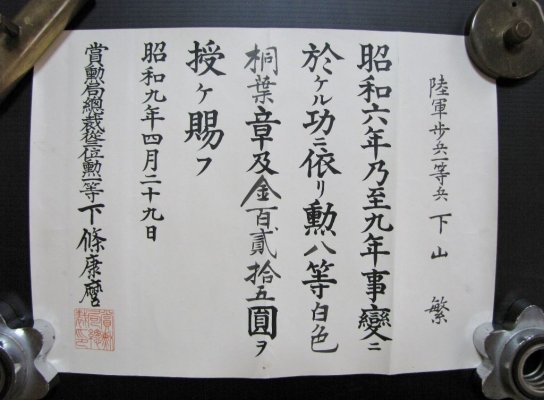 陸軍歩兵一等兵 下山 繁
昭和六年乃至九年事變ニ
於ケル功ニ依リ勲八等白色
桐葉章及金百貳拾五圓ヲ
授ケ賜フ
昭和九年四月二十九日
賞勲局總裁從三位勲一等下條康麿